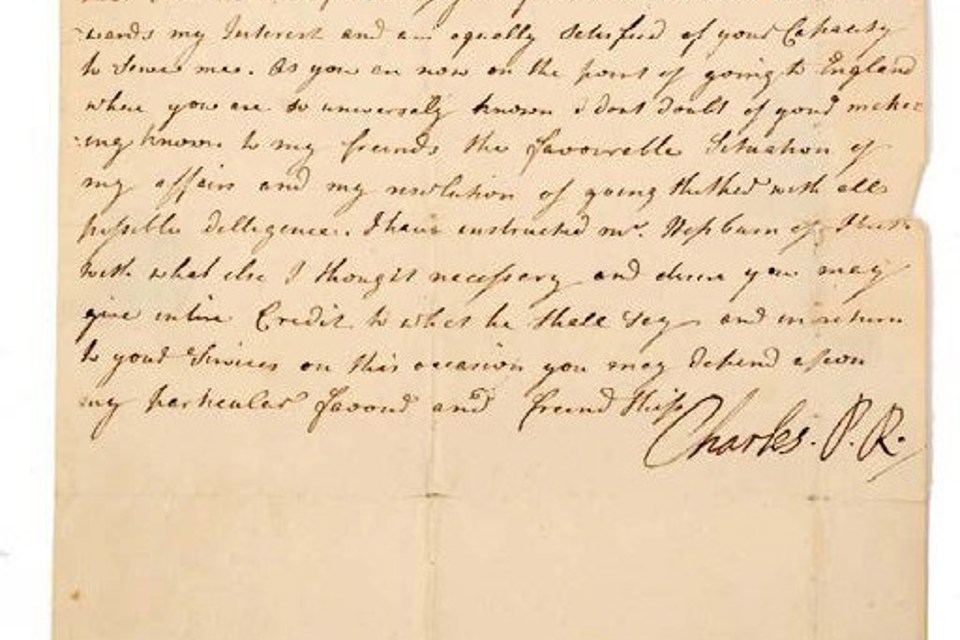 wards my Interest and am equally Satisfied of your Capacity
to Serve mee. As you are now on the point of going to England
where you are so universaly known i dont doubt of your makei=
=ing known to my freinds the favourable Situation of
my affairs and my resolution of going thither with all
possible dilligence. I have instructed mr. Hepburn of
with what else I thought necessary and desire you may
give intire Credit to what he Shall Say and in return
to your Services on this occasion you may depend upon
my particular favour and freindship
Charles. P. R.